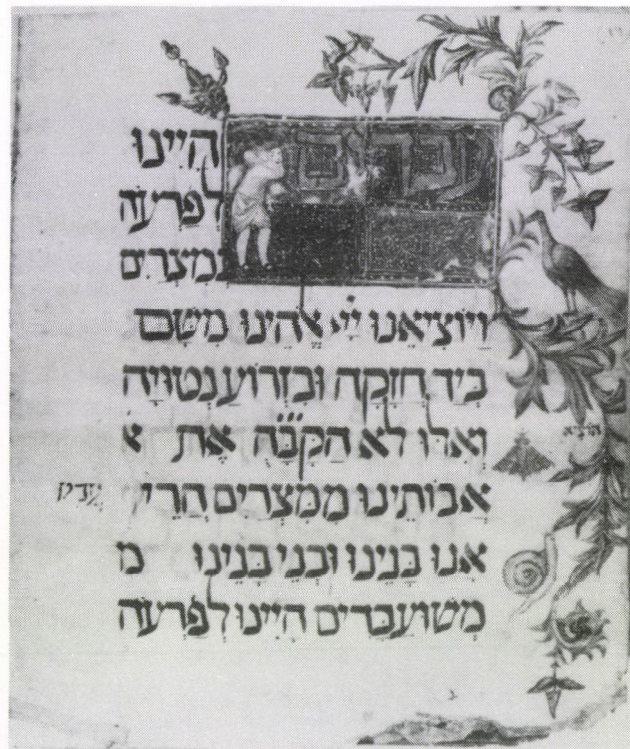 עבדים היינו
לפרעה
במצרים
ויוציאנו ייי אלהינו משם
ביד חזקה ובזרוע נטויה
הוציא
ואלו לא הקבה את א
אבותינו ממצרים הרי עדין
אנו בנינו ובני בנינו מ
משועבדים היינו לפרעה